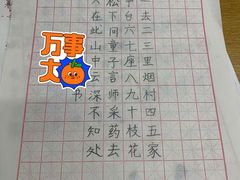 一去二三里烟村四五家
亭台六七座八九十枝花
松下问童子言师采药去
只在此山中云深不知处
书
万事
大